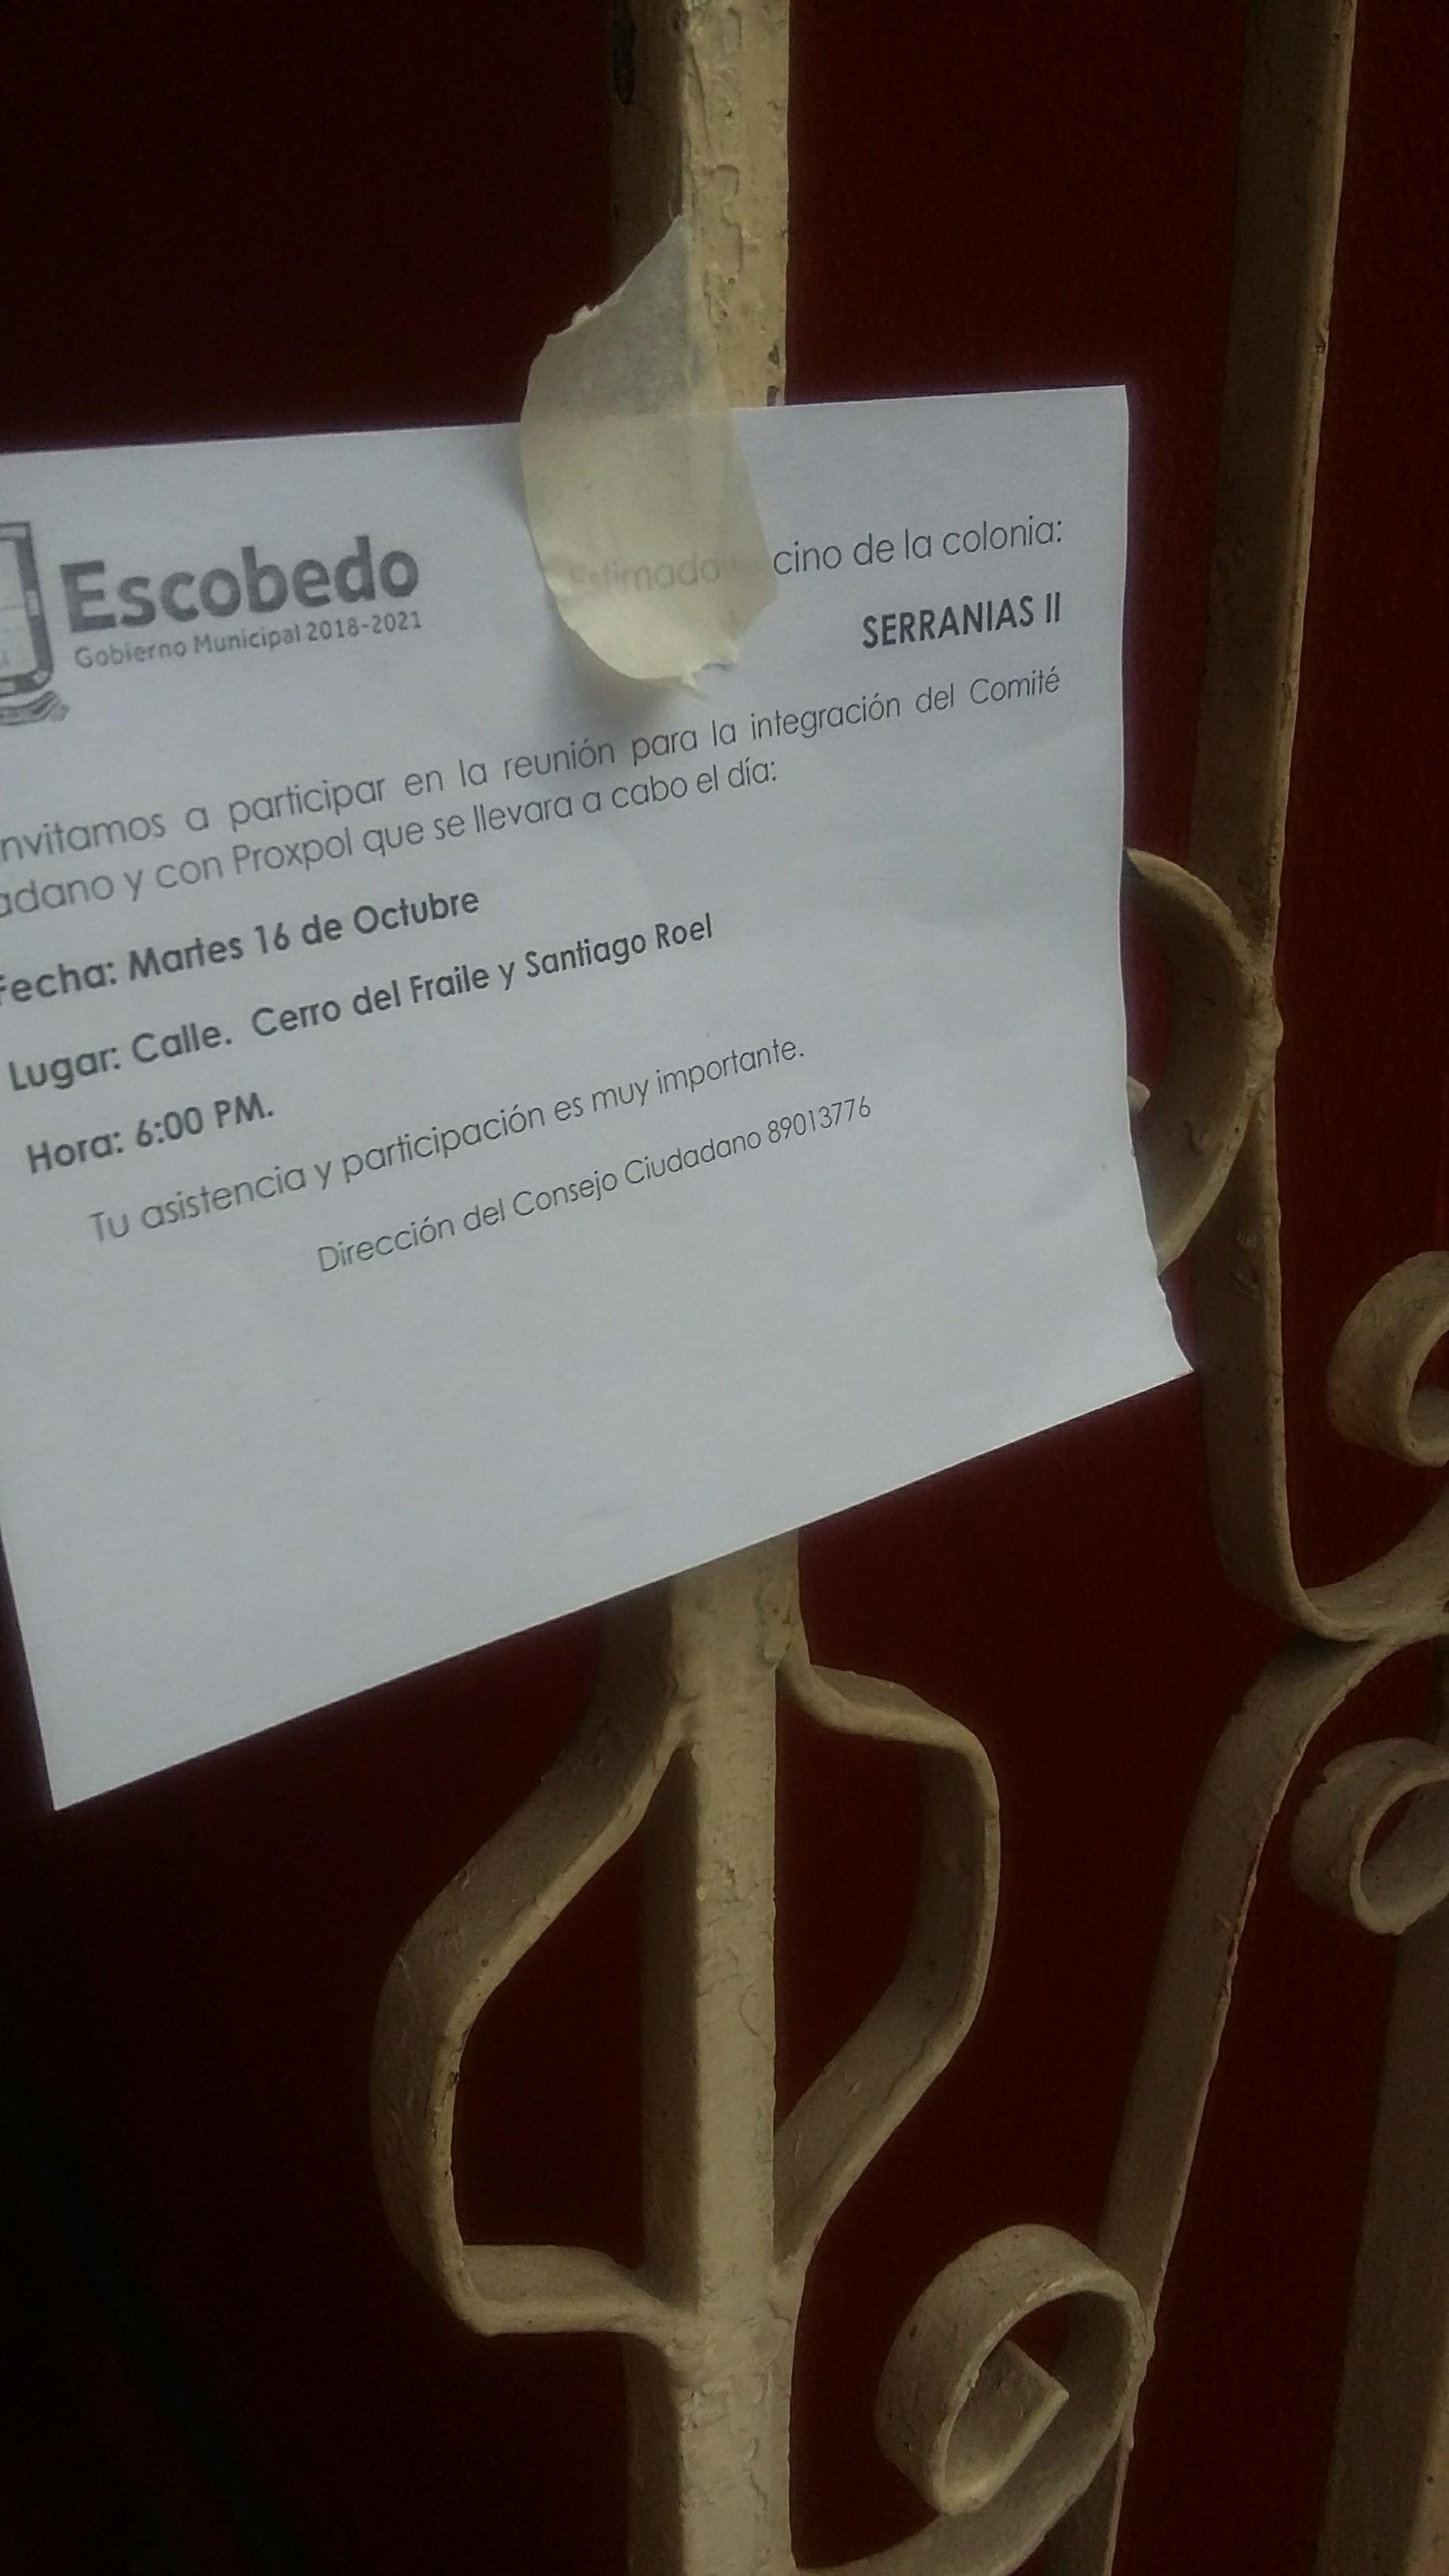 Escobedo
Gobierno Municipal 2018-2021
Estimado cino de la colonia:
SERRANIAS II
nvitamos a participar en la reunión para la integración del Comité
adano y con Proxpol que se llevara a cabo el día:
Fecha: Martes 16 de Octubre
Lugar: Calle. Cerro del Fraile y Santiago Roel
Hora: 6:00 PM.
Tu asistencia y participación es muy importante.
Dirección del Consejo Ciudadano 89013776